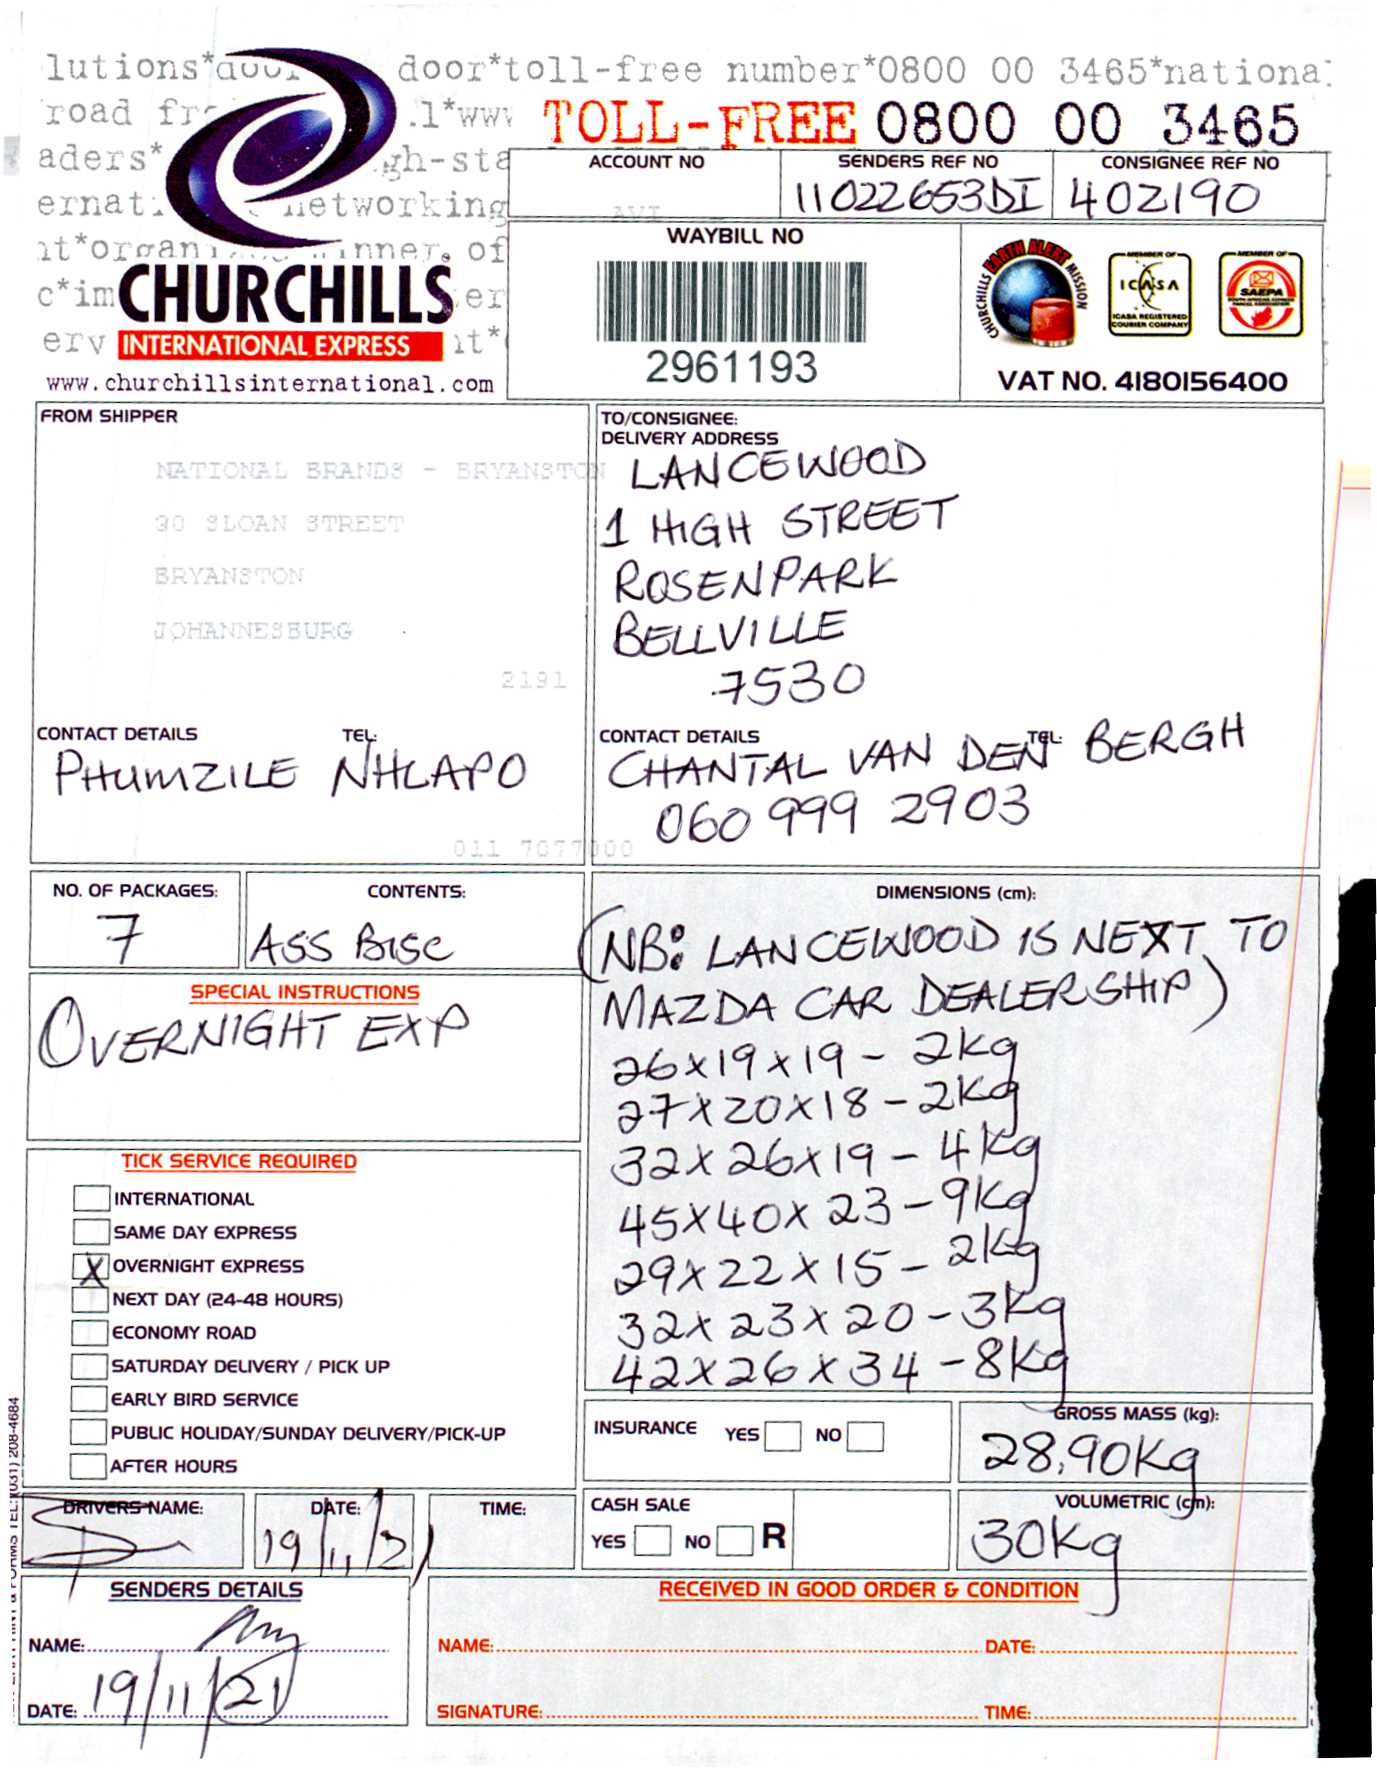 lutions*door door*toll-free number*0800 00 3465*national
road fr .l*www TOLL-FREE 0800 00 3465
aders* gh-sta
ACCOUNT NO
SENDERS REF NO
11022653DI
CONSIGNEE REF NO
402190
ernat networking
AVI
nt*organi winner, of
c*im er
erv nt*
CHURCHILLS
INTERNATIONAL EXPRESS
www.churchillsinternational.com
WAYBILL NO
2961193
CHURCHILLS EARTH ALERT MISSION
MEMBER OF
ICASA
ICASA REGISTERED
COURIER COMPANY
MEMBER OF
SAEPA
VAT NO. 4180156400
FROM SHIPPER
NATIONAL BRANDS - BRYANSTON
90 SLOAN STREET
BRYANSTON
JOHANNESBURG
2191
CONTACT DETAILS TEL:
PHUMZILE NHLAPO
011 7077000
TO/CONSIGNEE:
DELIVERY ADDRESS
LANCEWOOD
1 HIGH STREET
ROSENPARK
BELLVILLE
7530
CONTACT DETAILS TEL:
CHANTAL VAN DEN BERGH
060 999 2903
NO. OF PACKAGES:
7
CONTENTS:
ASS BISC
SPECIAL INSTRUCTIONS
OVERNIGHT EXP
DIMENSIONS (cm):
(NB: LANCEWOOD IS NEXT TO
MAZDA CAR DEALERSHIP)
26x19x19 - 2kg
27x20x18 - 2kg
32x26x19 - 4kg
45x40x23 - 9kg
29x22x15 - 2kg
32x23x20 - 3kg
42x26x34 - 8kg
TICK SERVICE REQUIRED
INTERNATIONAL
SAME DAY EXPRESS
X OVERNIGHT EXPRESS
NEXT DAY (24-48 HOURS)
ECONOMY ROAD
SATURDAY DELIVERY / PICK UP
EARLY BIRD SERVICE
PUBLIC HOLIDAY/SUNDAY DELIVERY/PICK-UP
AFTER HOURS
INSURANCE YES NO
GROSS MASS (kg):
28,90kg
DRIVERS NAME:
DATE:
19/11/21
TIME:
CASH SALE
YES NO R
VOLUMETRIC (cm):
30kg
SENDERS DETAILS
NAME:
DATE: 19/11/21
RECEIVED IN GOOD ORDER & CONDITION
NAME: DATE:
SIGNATURE: TIME:
FORMS TEL: (031) 208-4684